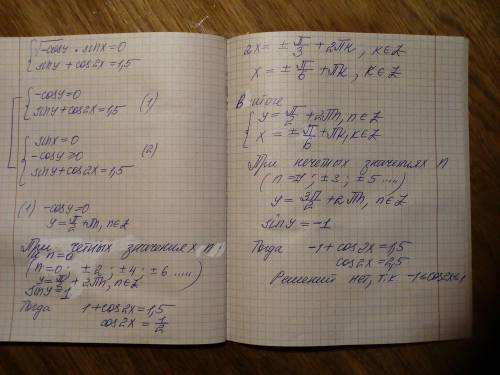 √-cosy · sinx = 0
siny + cos2x = 1,5
-cosy = 0
siny + cos2x = 1,5 (1)
sinx = 0
-cosy ≥ 0 (2)
siny + cos2x = 1,5
(1) -cosy = 0
y = π/2 + πn, n∈Z
При четных значениях n
(n = 0; ±2; ±4; ±6 .....)
y = π/2 + 2πn, n∈Z
siny = 1
Тогда 1 + cos2x = 1,5
cos2x = 1/2
2x = ± π/3 + 2πk, k∈Z
x = ± π/6 + πk, k∈Z
В итоге
y = π/2 + 2πn, n∈Z
x = ± π/6 + πk, k∈Z
При нечетных значениях n
(n = ±1; ±3; ±5 .....)
y = 3π/2 + 2πn, n∈Z
siny = -1
Тогда -1 + cos2x = 1,5
cos2x = 2,5
Решений нет, т.к. -1≤cos2x≤1